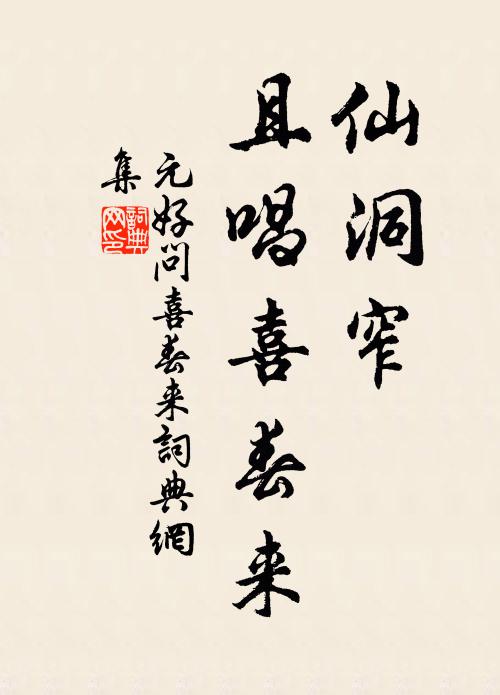 仙洞窄
且唱喜春来
元好问喜春来詞典網
集
詞典
网印